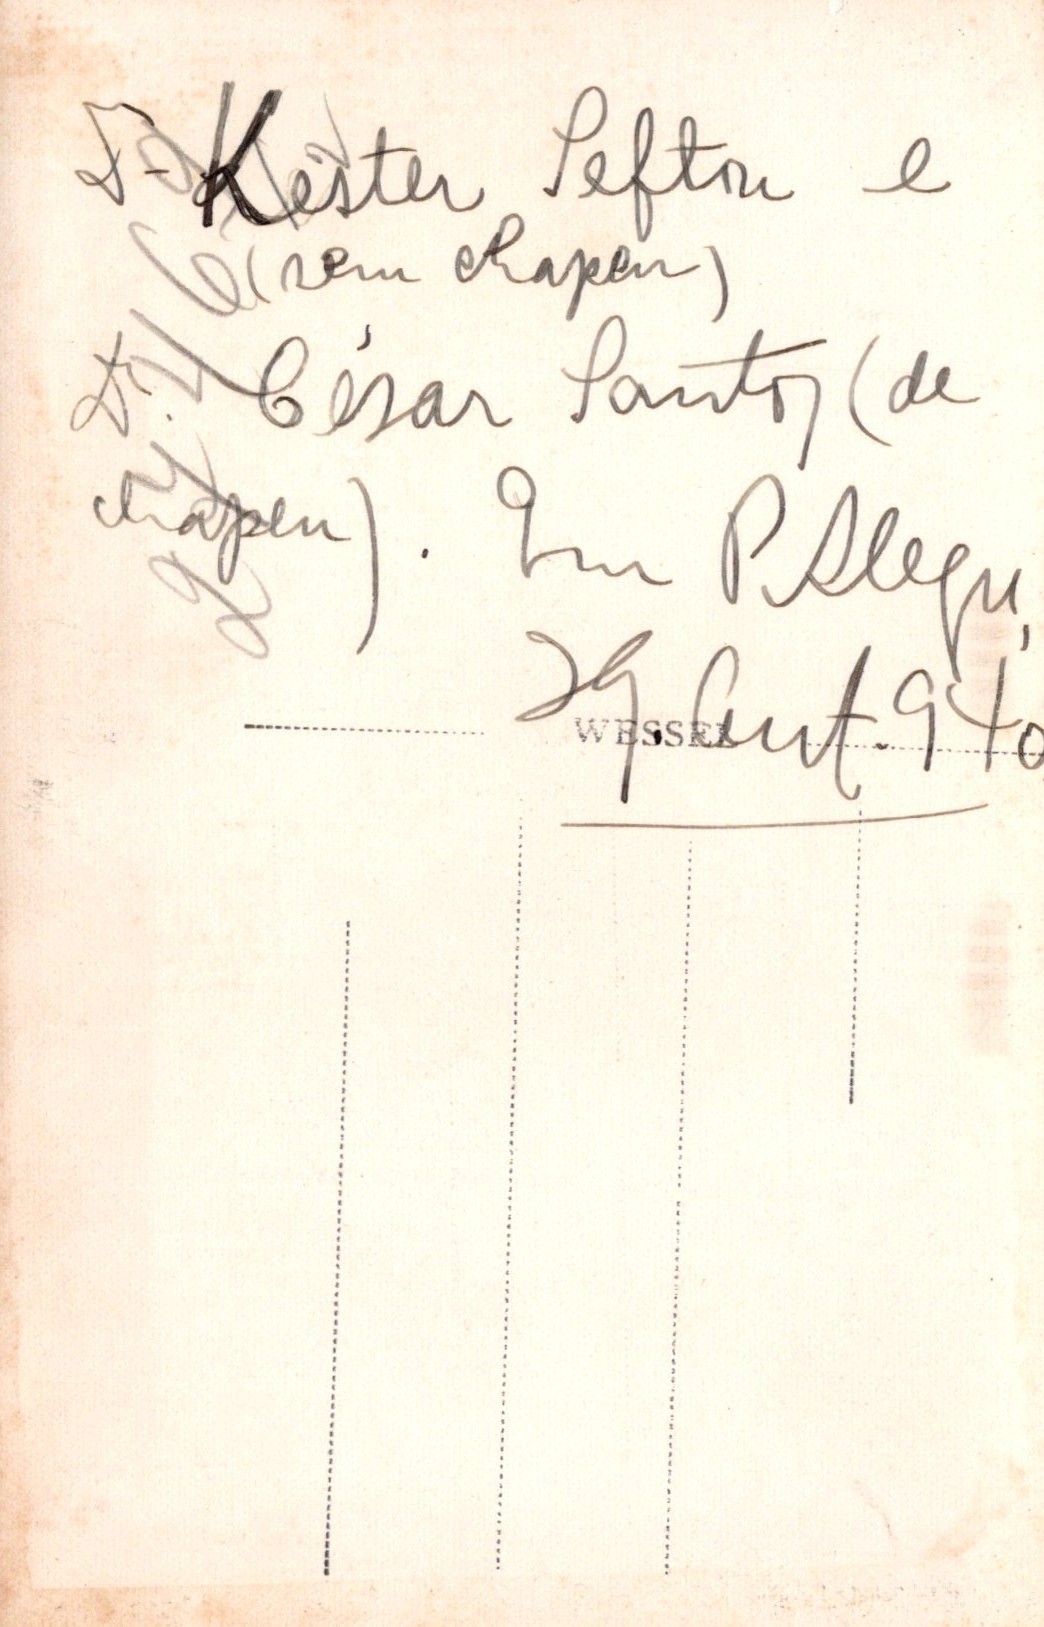 Dr. Kester Sefton e
(sem chapeu)
Dr. César Santos (de
chapeu). Em P. Alegre,
29. Out. 940
WESSEL